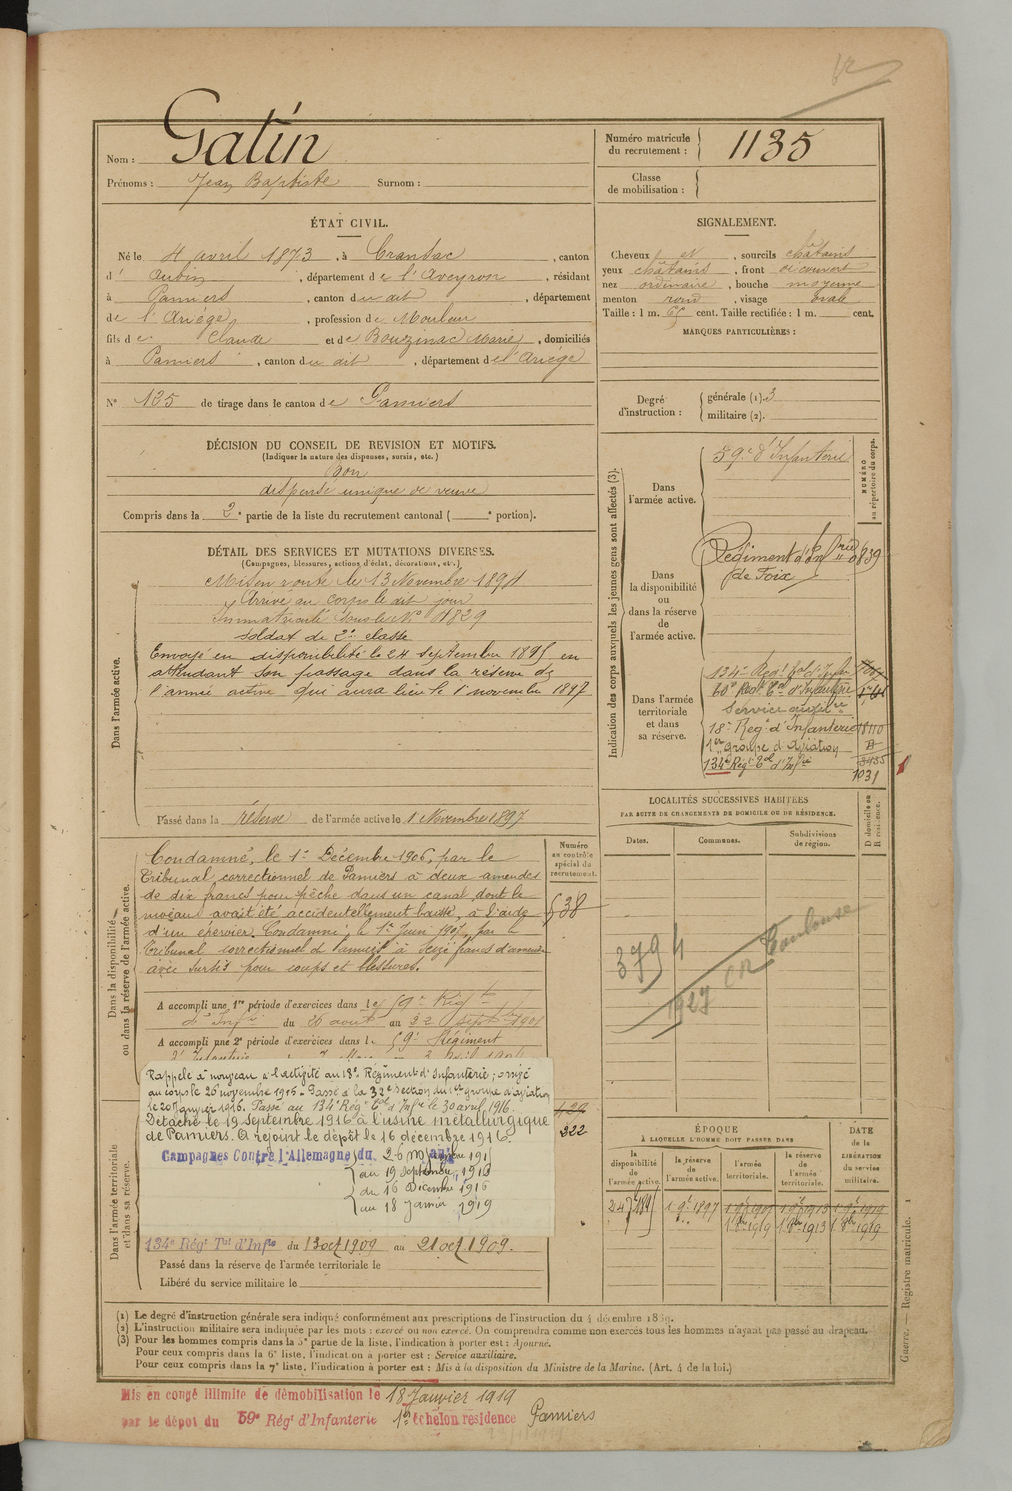 Nom : Gatin
Prénoms : Jean Baptiste Surnom :
Numéro matricule du recrutement : 1135
Classe de mobilisation :
ÉTAT CIVIL.
Né le 4 avril 1873, à Cransac, canton
d' Aubin, département de l'Aveyron, résidant
à Pamiers, canton du dit, département
de l'Ariège, profession de Mouleur
fils de Claude et de Bouzinac Marie, domiciliés
à Pamiers, canton du dit, département de l'Ariège
N° 125 de tirage dans le canton de Pamiers
SIGNALEMENT.
Cheveux et, sourcils châtains
yeux châtains, front découvert
nez ordinaire, bouche moyenne
menton rond, visage ovale
Taille : 1 m. cent. Taille rectifiée : 1 m. cent.
MARQUES PARTICULIÈRES :
Degré d'instruction : générale (1). 3
militaire (2).
DÉCISION DU CONSEIL DE REVISION ET MOTIFS.
(Indiquer la nature des dispenses, sursis, etc.)
Bon
dispensé unique de veuve
Compris dans la 2e partie de la liste du recrutement cantonal ( e portion).
DÉTAIL DES SERVICES ET MUTATIONS DIVERSES.
(Campagnes, blessures, actions d'éclat, décorations, etc.)
Dans l'armée active.
Mis en route le 13 Novembre 1894
Arrivé au corps le dit jour
Immatriculé sous le N°
soldat de 2e classe
Envoyé en disponibilité le 24 septembre 1895 en
attendant son passage dans la réserve de
l'armée active qui aura lieu le 1 novembre 1897
Passé dans la réserve de l'armée active le 1 Novembre 1897
Indication des corps auxquels les jeunes gens sont affectés (3).
NUMÉRO au répertoire du corps.
Dans l'armée active.
59e d'Infanterie
Dans la disponibilité ou dans la réserve de l'armée active.
Régiment d'Infrie
de Foix
Dans l'armée territoriale et dans sa réserve.
134e Régt Tal d'Infie
60e Régt Tal d'Infanterie
Service auxilre
18e Régt d'Infanterie 18110
1er groupe d'aviation
134e Régt Tal d'Infie
1031
LOCALITÉS SUCCESSIVES HABITÉES
PAR SUITE DE CHANGEMENTS DE DOMICILE OU DE RÉSIDENCE.
Dates. Communes. Subdivisions de région. D domicile ou R résidence.
3794
1927 CR Toulouse
Dans la disponibilité ou dans la réserve de l'armée active.
Numéro au contrôle spécial du recrutement.
Condamné, le 1er Décembre 1906, par le
Tribunal correctionnel de Pamiers à deux amendes
de dix francs pour pêche dans un canal dont le
niveau avait été accidentellement baissé, à l'aide
d'un épervier. Condamné le 1er Juin 1907, par le
Tribunal correctionnel de Pamiers à seize francs d'amende
avec sursis pour coups et blessures.
A accompli une 1re période d'exercices dans le 59e Régt
d'Infie du 26 août au 22 septbre 1901
A accompli une 2e période d'exercices dans le 59e Régiment
Dans l'armée territoriale et dans sa réserve.
Rappelé à nouveau à l'activité au 18e Régiment d'Infanterie ; arrivé
au corps le 26 novembre 1915. Passé à la 32e section du 1er groupe d'aviation
le 20 janvier 1916. Passé au 134e Régt Tal d'Infie le 30 avril 1916.
Détaché le 19 septembre 1916 à l'usine métallurgique
de Pamiers. A rejoint le dépôt le 16 décembre 1916.
322
Campagnes Contre l'Allemagne du 26
au 19 septembre 1916
du 16 Décembre 1916
au 18 janvier 1919
134e Régt Tal d'Infie du 13 oct 1909 au 21 oct 1909.
Passé dans la réserve de l'armée territoriale le
Libéré du service militaire le
ÉPOQUE
À LAQUELLE L'HOMME DOIT PASSER DANS
la disponibilité de l'armée active. la réserve de l'armée active. l'armée territoriale. la réserve de l'armée territoriale.
DATE de la LIBÉRATION du service militaire.
(1) Le degré d'instruction générale sera indiqué conformément aux prescriptions de l'instruction du 4 décembre 1889.
(2) L'instruction militaire sera indiquée par les mots : exercé ou non exercé. On comprendra comme non exercés tous les hommes n'ayant pas passé au drapeau.
(3) Pour les hommes compris dans la 5e partie de la liste, l'indication à porter est : Ajourné.
Pour ceux compris dans la 6e liste, l'indication à porter est : Service auxiliaire.
Pour ceux compris dans la 7e liste, l'indication à porter est : Mis à la disposition du Ministre de la Marine. (Art. 4 de la loi.)
Guerre. — Registre matricule. 1
Mis en congé illimité de démobilisation le 18 Janvier 1919
par le dépôt du 59e Régt d'Infanterie 1er échelon résidence Pamiers